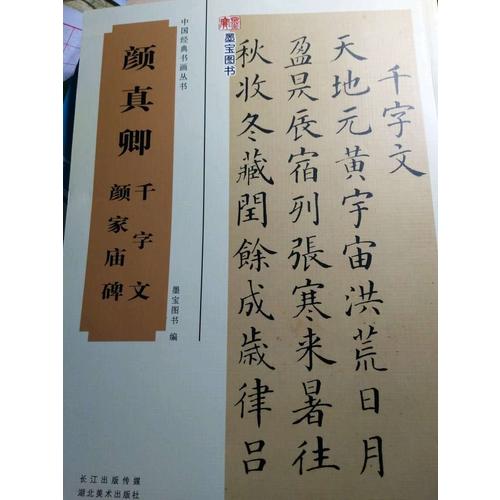 中国经典书画丛书
颜真卿
千字文
颜家庙碑
墨宝图书 编
长江出版传媒
湖北美术出版社
墨宝图书
千字文
天地元黄宇宙洪荒日月
盈昃辰宿列張寒来暑往
秋收冬藏閏餘成歳律吕